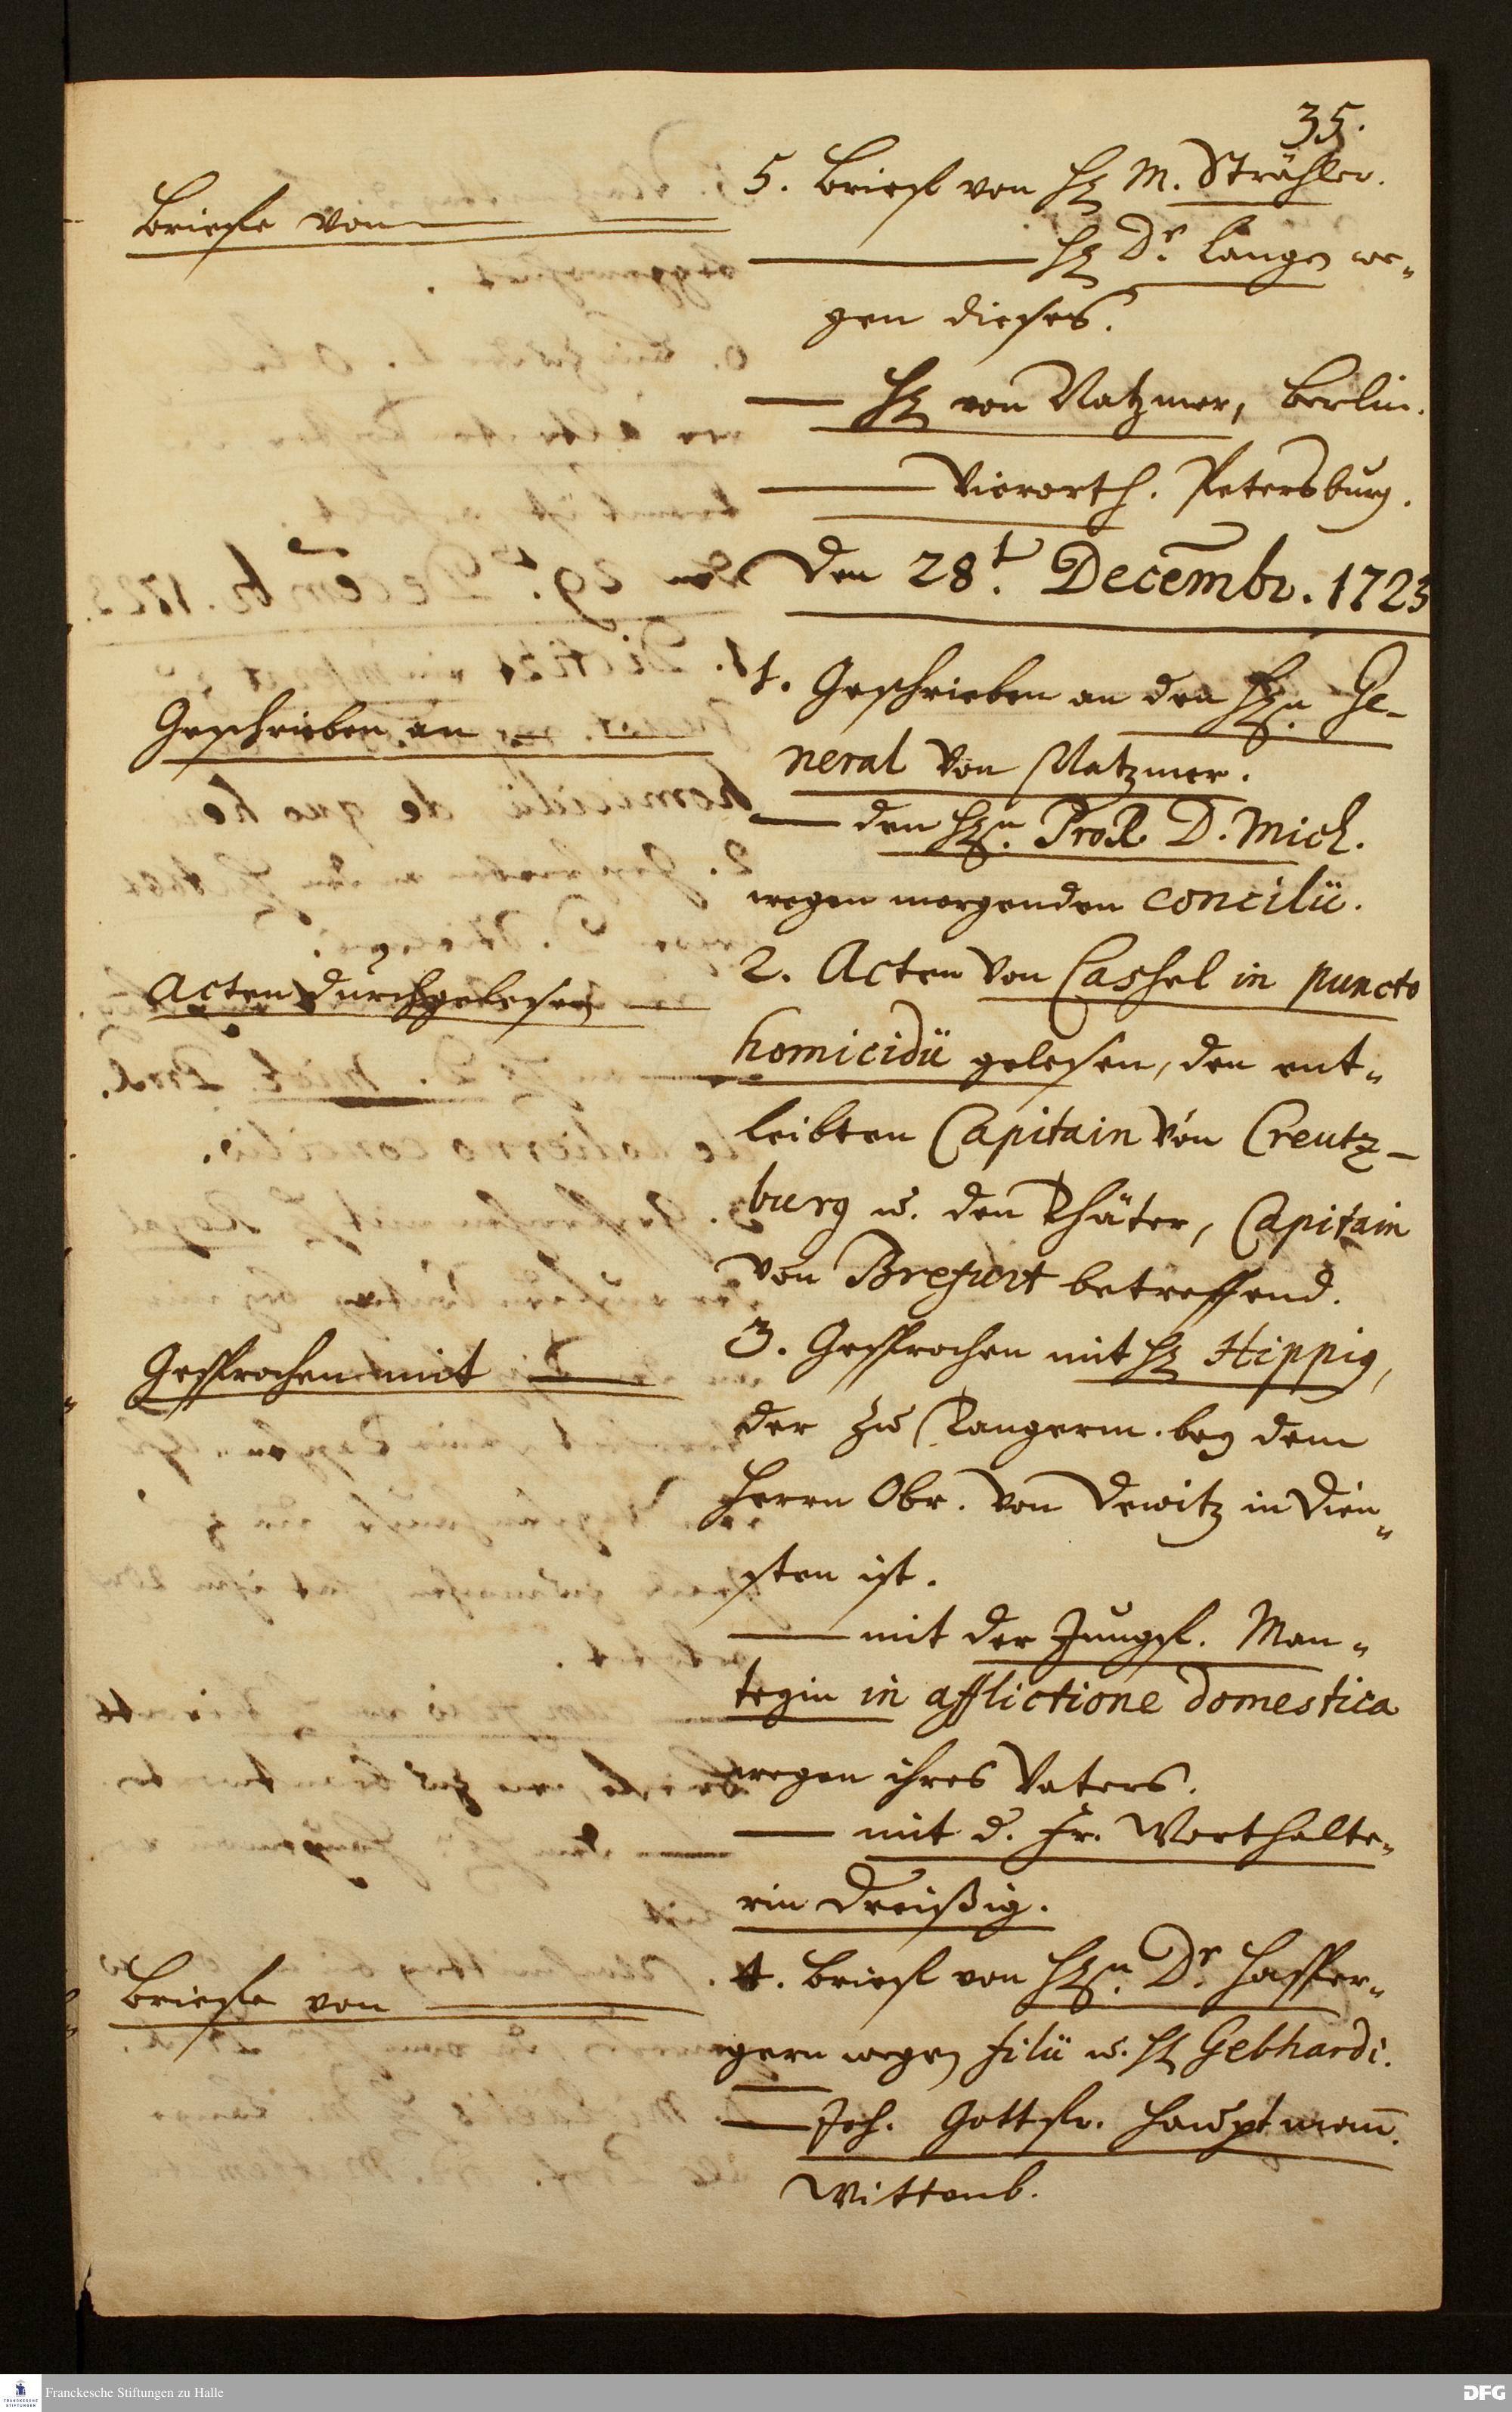 35.
Briefe von
5. Brief von H M. Strähler.
H Dr. Langen we-
gen dieses.
H von Natzmer, Berlin.
Vierorth. Petersburg.
Den 28t. Decembr. 1723
Geschrieben an
1. Geschrieben an den Hn. Ge-
neral von Natzmer.
den Hn. ProR. D. Mich.
wegen morgenden concilii.
Acten durchgelesen
2. Acten von Cassel in puncto
homicidii gelesen, den ent-
leibten Capitain von Creutz-
burg u. den Thäter, Capitain
von betreffend.
Gesprochen mit
3. Gesprochen mit H Hippig,
der zu Tangerm. bey dem
Herrn Obr. von Dewitz in Dien-
sten ist.
mit der Jungf. Man-
tegin in afflictione domestica
wegen ihres Vaters.
mit d. Fr. Worthalte-
rin Dreißig.
Briefe von
4. Brief von Hn. Dr. Haffer-
gern wegen filii u. H Gebhardi.
Joh. Gottfr. Hauptmann.
Wittenb.
Franckesche Stiftungen zu Halle
DFG